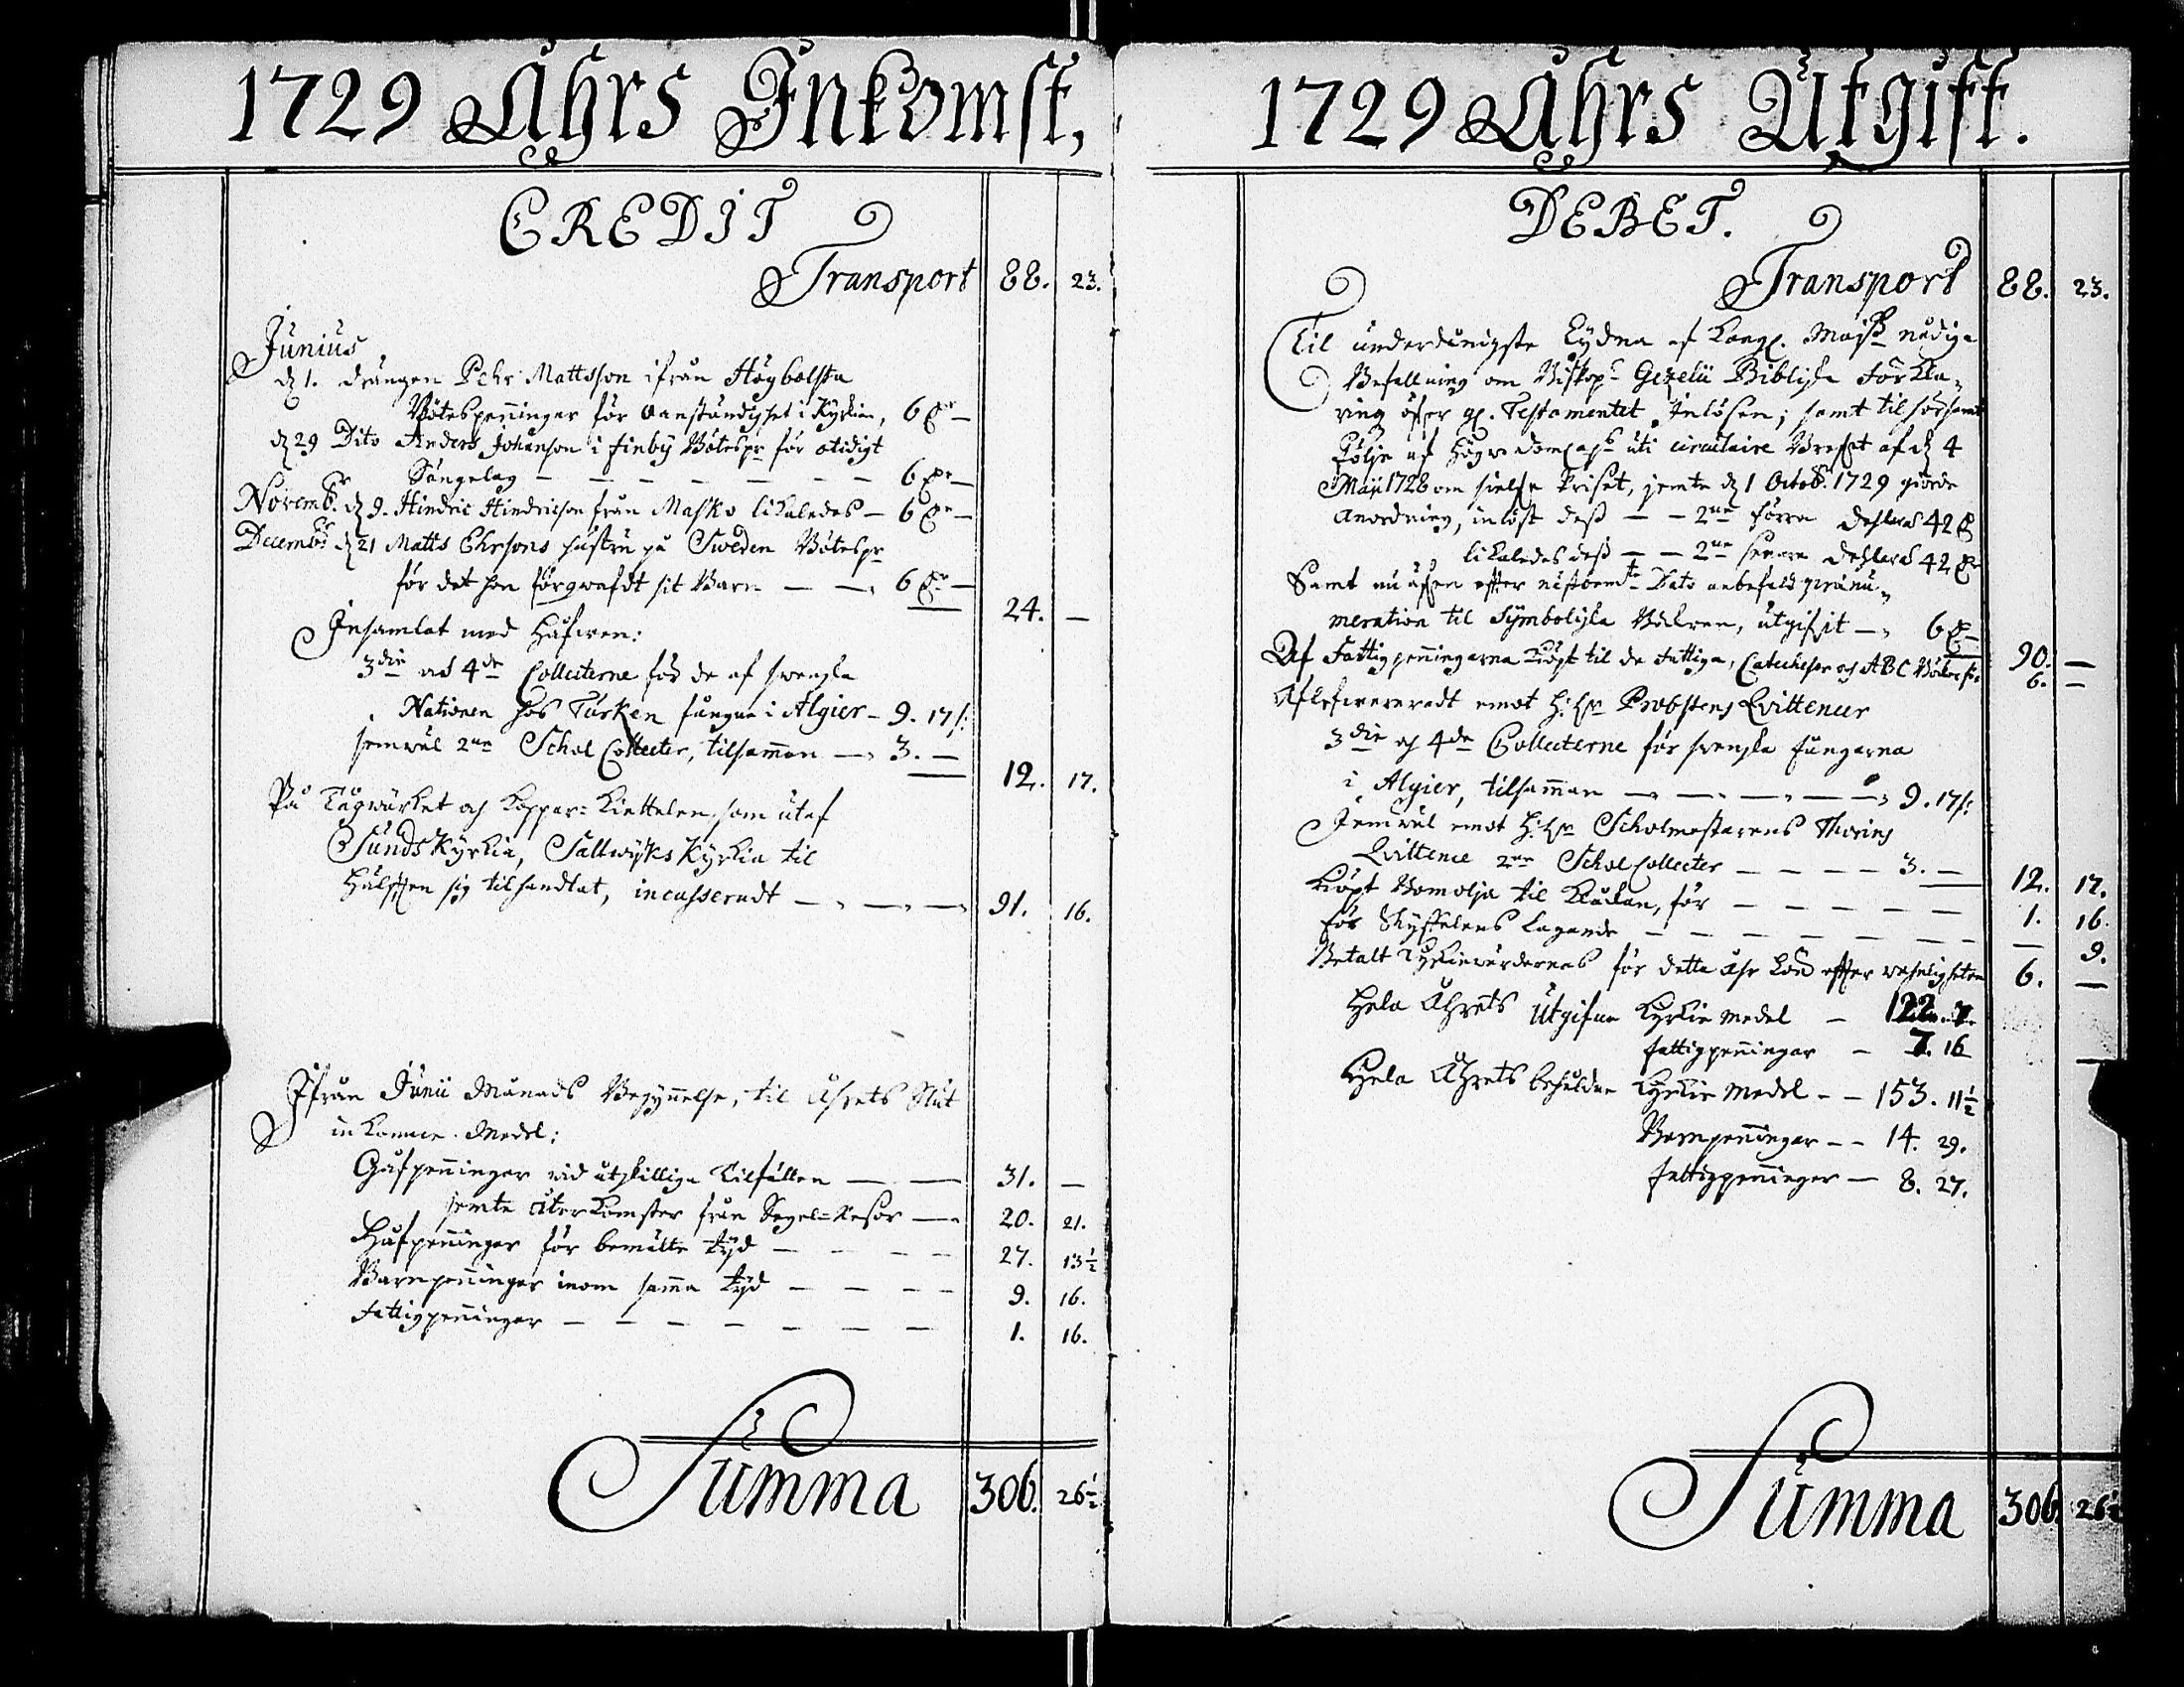 1729 Åhrs Inkomst,
CREDIT
Transport 88. 23.
Junius
d. 1. Drängen Pehr Mattsson ifrån Högbolsta
Bötespenningar för oanständighet i Kyrkian, 6 Dr —
d. 29 Dito Anders Johanson i Finby Bötespr för otidigt
Sängelag — — — — — — 6 Dr —
Novembr. d. 9. Hindric Hindricson från Masko likaledes — 6 Dr —
Decembr d. 21 Matts Ehrsons hustru på Sweden Bötespr
för det hon förqwafdt sit Barn — — 6 Dr — 24. —
Insamlat med Håfwen:
3die och 4de Collecterne för de af swenska
Nationen hos Turken fångne i Algier — 9. 17 /:
jemwäl 2ne Schol Collecter, tilsamman — 3. — 12. 17.
På Tågwärket och Koppar-Kiettelen, som utaf
Sunds Kyrkia, Saltwyks Kyrkia til
Hälften sig tilhandlat, incasseradt — — — 91. 16.
Ifrån Junii Månads Begynnelse, til Åhrets Slut
inkomne Medel:
Gåfpenningar wid åtskillige Tilfällen — — 31. —
jemte återkomster från Segel-Resor — 20. 21.
Håfpenningar för bemälte tyd — — — — 27. 13½
Barnpenningar inom samma tyd — — — — 9. 16.
Fattigpenningar — — — — — — — 1. 16.
Summa 306. 26½
1729 Åhrs Utgift.
DEBET.
Transport 88. 23.
Til underdånigste Lydna af Kongl. Majtz nådige
Befallning om Biskop Gezelii Biblische Förkla-
ring öfver gl. Testamentet Inlösen; samt til hörsamt
Följe af Högw. Domcap. uti circulaire Brefwet af d. 4
Maji 1728 om sielfwe Priset, jemte d. 1 Octob. 1729 giorde
Anordning, inlöst dess — — 2ne förra Dehlar à 42 Dr
likaledes dess — — 2ne senare Dehlar à 42 Dr
Samt nu äfwen efter nästbemte Dato anbefald prænu-
meration til Symboliska Böckren, utgifwit — 6 Dr — 90. —
Af Fattigpenningarna Kiöpt til de Fattiga, Catecheser och ABC Böcker för 6. —
Aflefwereradt emot H. Hr Probstens Qvittencer
3die och 4de Collecterne för swenska fångarna
i Algier, tilsamman — — — — — 9. 17 /:
Jemwäl emot H. Hr Scholmestarens Thorings
Qvittence 2ne Schol Collecter — — — — 3. — 12. 17.
Kiöpt Bomolja til Klåckan, för — — — — — 1. 16.
För Skyffelens Lagande — — — — — — — 9.
Betalt Kyrkiewärdernas för detta åhr Lön efter wahnligheten 6. —
Hela Åhrets Utgifne Kyrkie Medel — 122. 7
Fattigpenningar — 7. 16
Hela Åhrets behåldne Kyrkie Medel — — 153. 11½
Barnpenningar — — 14. 29.
Fattigpenningar — 8. 27.
Summa 306. 26½